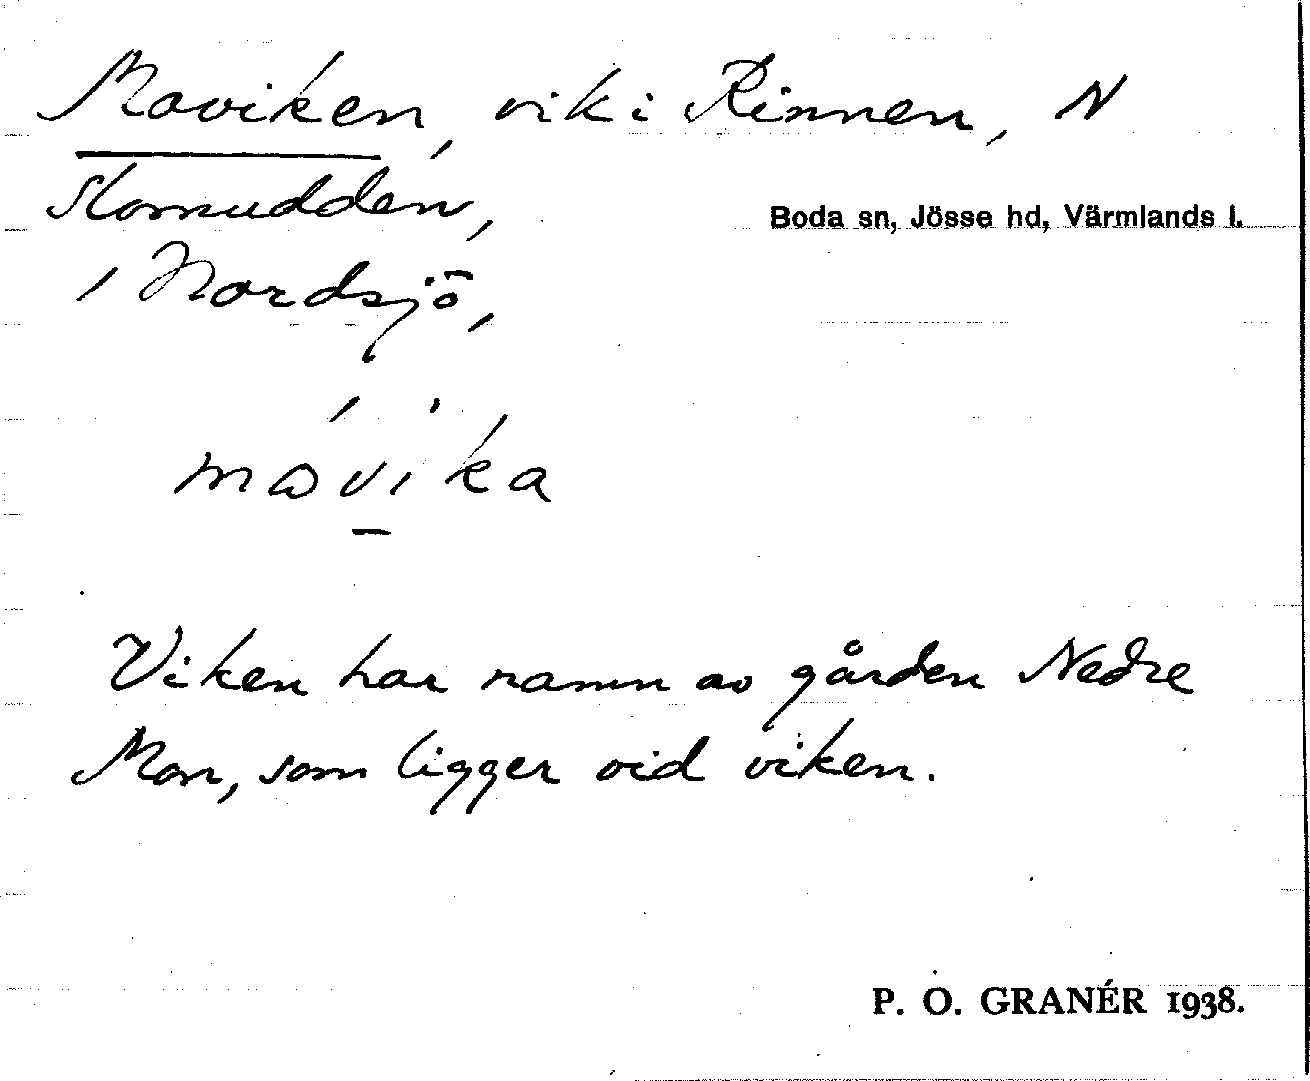 Moviken, vik i Rinnen, N
Boda sn, Jösse hd, Värmlands l.
i Nordsjö,
Viken har namn av gården Nedre
Mon, som ligger vid viken.
P. O. GRANÉR 1938.